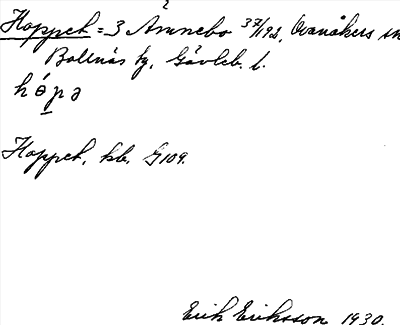 Hoppet = 3 Ämnebo 37/192, Ovanåkers sn
Bollnäs tg, Gävleb. l.
hópə
Hoppet, kb. G109.
Erik Eriksson 1930.